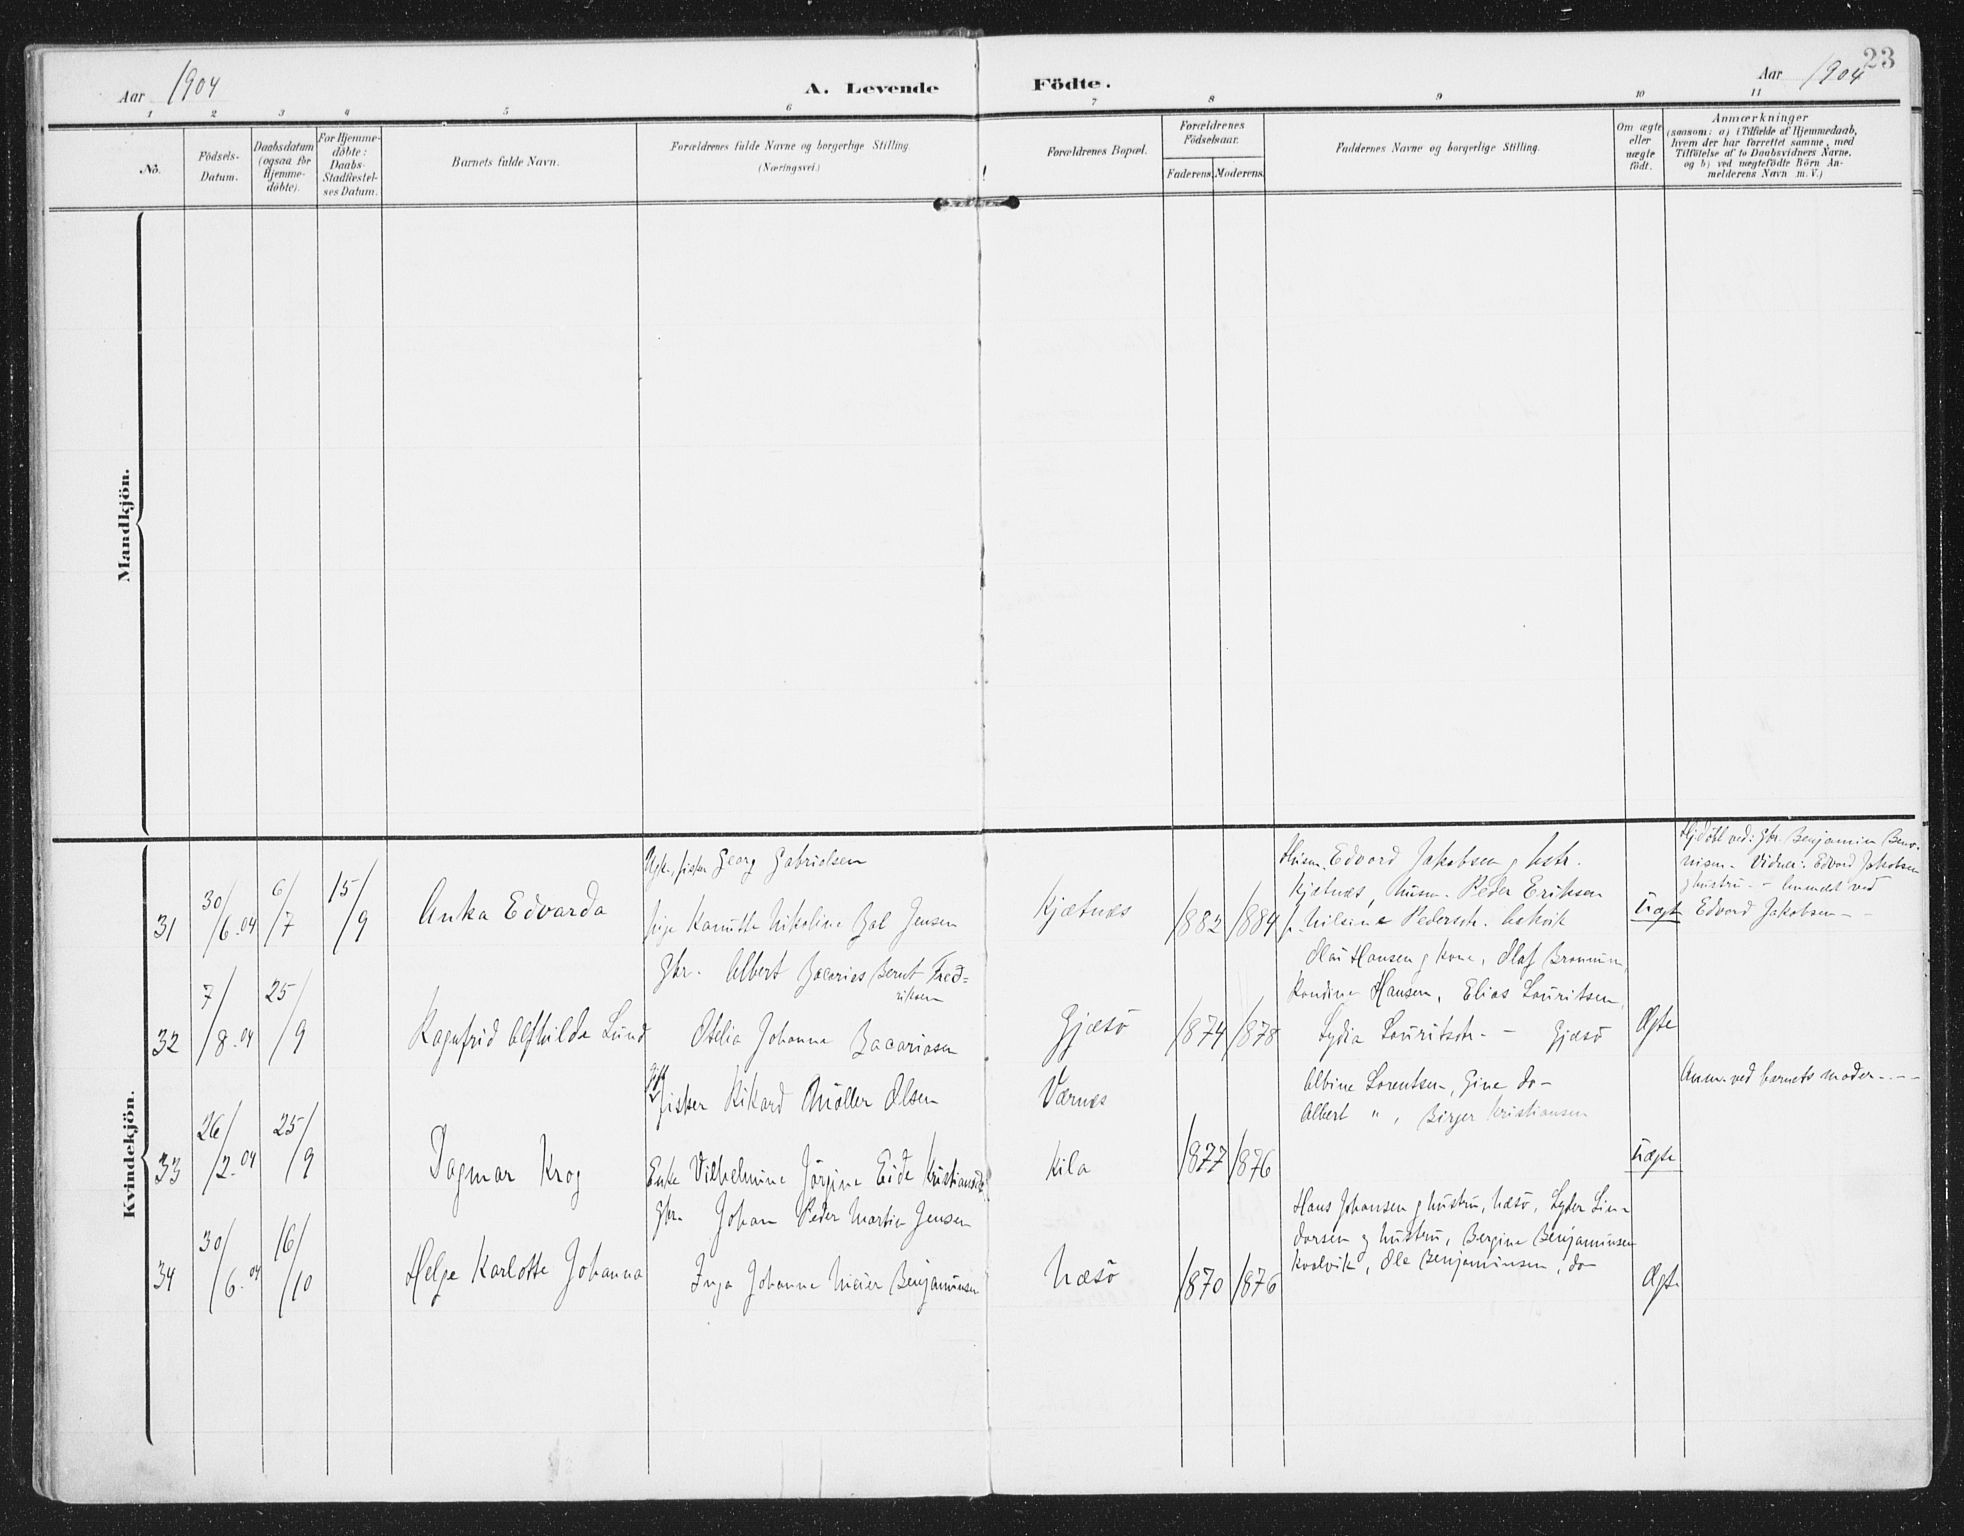 23
Aar 1904
A. Levende Födte.
Aar 1904
1 2 3 4 5 6 7 8 9 10 11
No.
Födsels-
Datum.
Daabsdatum
(ogsaa for
Hjemme-
döbte).
For Hjemme-
döbte:
Daabs-
Stadfæstel-
ses Datum.
Barnets fulde Navn.
Forældrenes fulde Navne og borgerlige Stilling
(Næringsvei.)
Forældrenes Bopæl.
Forældrenes
Födselsaar.
Faderens. Moderens.
Faddernes Navne og borgerlige Stilling.
Om ægte
eller
uægte
födt.
Anmærkninger
(saasom: a) i Tilfælde af Hjemmedaab,
hvem der har forrettet samme, med
Tilföielse af to Daabsvidners Navne,
og b) ved uægtefödte Börn An-
melderens Navn m. V.)
Mandkjön.
Kvindekjön.
31
30/6.04
6/7
15/9
Anka Edvarda
Ugk., fisker Georg Gabrielsen
pige Nikoline Jensen
Kjætnæs
1882 1884
Husm. Edvard Jakobsen g hstr.
Kjætnæs, husm. Peder Eriksen
Pedersdtr.
Uægte
Hjdöbt ved: Gbr. Benjamin
Vidner: Edvard Jakobsen
g hustru - Anmeldt ved
Edvard Jakobsen -
32
7/8.04
25/9
Ragnfrid Alfhilda Lund
Gbr. Albert Zacarias Bernt Fred=
riksen
Otelia Johanna Zacariasen
Gjæsö
1874 1878
Hansen g kone, Olaf
Hansen, Elias Lauritsen,
Lydia Lauritsdtr. - Gjæsö
Ægte
33
26/2.04
25/9
Dagmar Krog
fisker Rikard Möller Olsen
Enke Vilhelmine Jörgine Eide Kristiansdtr.
Værnes
Kila
1877 1876
Albine Lorentsen, Gine do-
Albert " , Birger Kristiansen
Uægte
Anm. ved barnets moder - - -
34
30/6.04
16/10
Helge Karlotte Johanna
Gbr. Johan Peder Martin Jensen
Inga Johanne Meier Benjaminsen
Næsö
1870 1876
Hans Johansen g hustru, Næsö,
g hustru, Bergine Benjaminsen
Kvalvik, Ole Benjaminsen, do-
Ægte